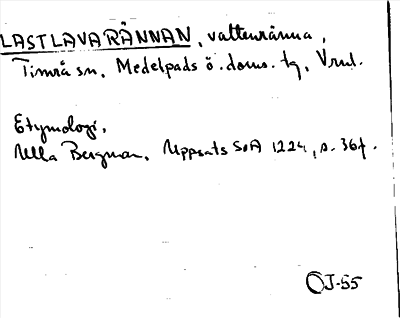 LASTLAVARÄNNAN, vattenränna,
Timrå sn, Medelpads ö. doms. tg, Vrnl.
Etymologi,
Ulla Bergman, Uppsats SoA 1224, s. 36f.
OJ-55